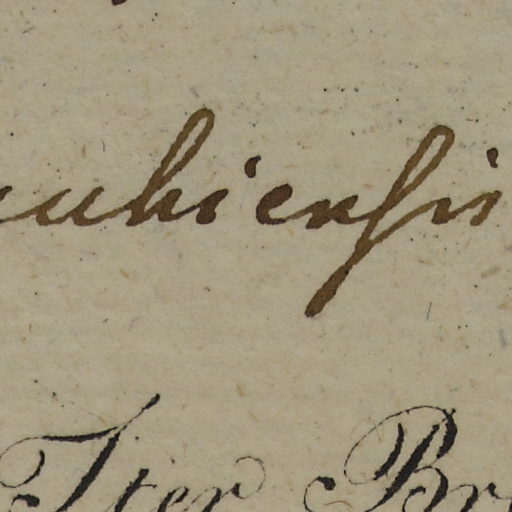 uhiensis
Iter Br